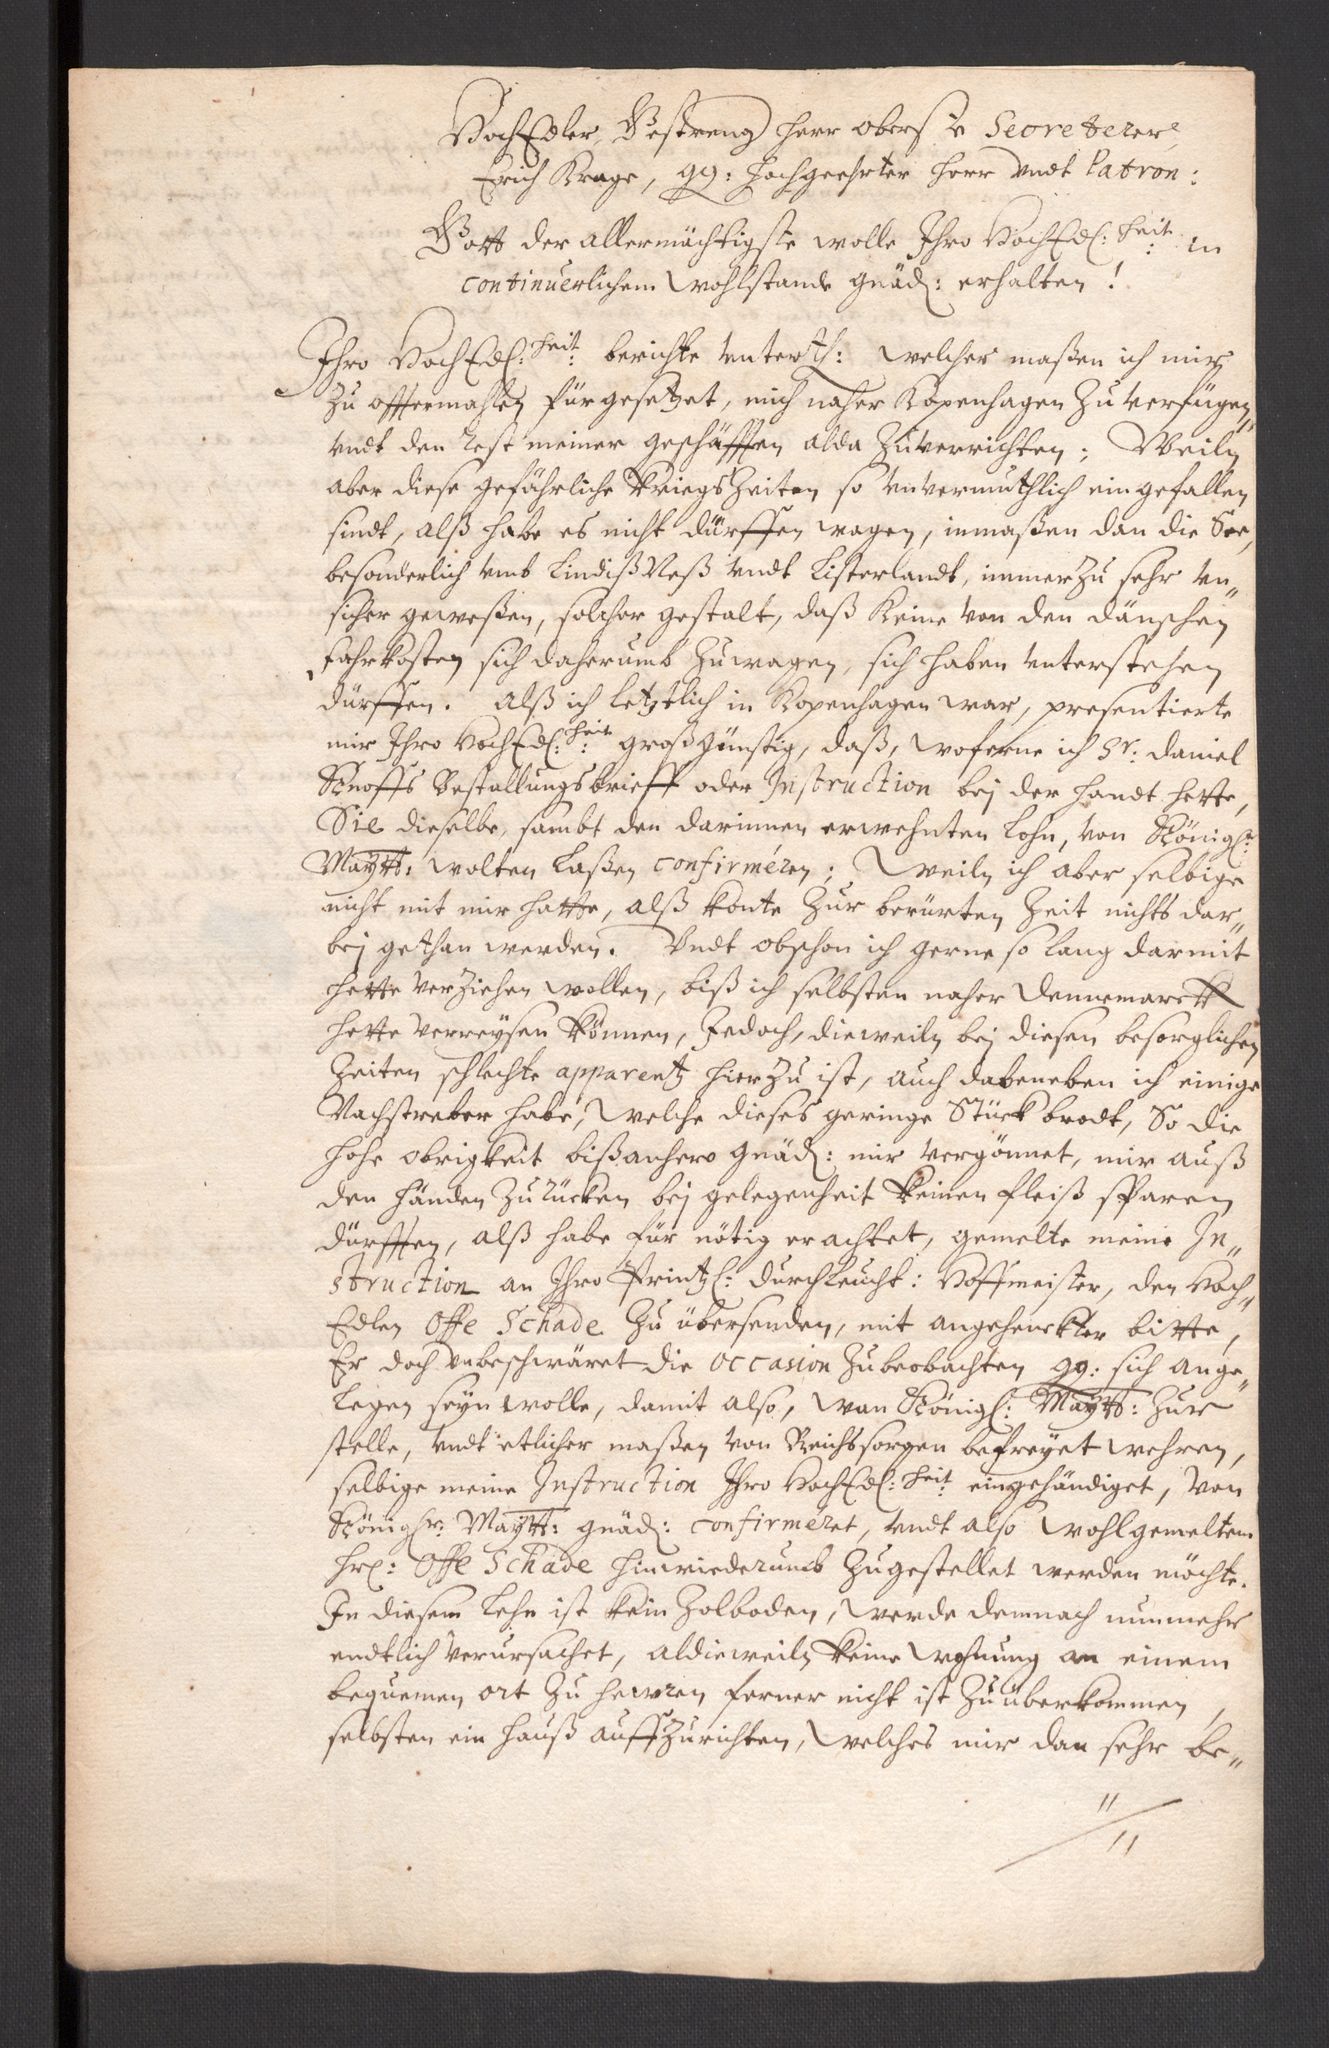 HochEdler, Gestreng Herr oberste Secreterer,
Erich Krage, gg: Hochgeehrter Herr undt Patron:
Gott der allermächtigste wolle Ihro HochEdl: heit: in
continuerlichem Wohlstande gnäd: erhalten!
Ihro HochEdl: heit: berichte unterth: welcher maßen ich mir
zu offtermahlen fürgesetzet, mich naher Kopenhagen zu verfügen,
undt den Rest meiner geschäfften alda zuverrichten; Weiln
aber diese gefährliche KriegsZeiten so unvermuthlich eingefallen
sindt, alß habe es nicht dürffen wagen, inmaßen dan die See,
besonderlich umb Lindißneß undt Listerlandt, immerzu sehr un„
sicher geweßen, solcher gestalt, daß Keine von den dänschen
fahrkosten sich daherumb zuwagen, sich haben unterstehen
dürffen. Alß ich letztlich in Kopenhagen war, presentierte
mir Ihro HochEdl: heit: großgünstig, daß, woferne ich Sr: Daniel
Knoffs Bestallungsbrieff oder Instruction bej der handt hette,
Sie dieselbe, sambt den darinnen erwehnten Lohn, von Königl:
Maytt: wolten laßen confirméren; Weiln ich aber selbige
nicht mit mir hatte, alß konte zur berürten Zeit nichts dar„
bej gethan werden. Undt obschon ich gerne so lang darmit
hette verziehen wollen, biß ich selbsten naher Dennemarck
hette verreysen können, Jedoch, dieweiln bej diesen besorglichen
Zeiten schlechte apparentz hierzu ist, auch dabeneben ich einige
Nachstreber habe, Welche dieses geringe Stück brodt, So die
hohe obrigkeit bißanhero gnäd: mir vergönnet, mir auß
den händen zu rücken bej gelegenheit keinen fleiß sparen
dürfften, alß habe für nötig erachtet, gemelte meine In„
struction an Ihro Printzl: Durchleucht: Hoffmeister, den Hoch„
Edlen Offe Schade zu übersenden, mit angehenckter bitte,
Er doch unbeschwäret die occasion zubeobachten gg: sich ange„
legen seyn wolle, damit also, wan Königl: Maytt: zur
stelle, undt etlicher maßen von Reichssorgen befreyet wehren,
selbige meine Instruction Ihro HochEdl: heit: eingehändiget, von
Königlr: Maytt: gnäd: confirméret, undt also wohlgemeltem
Hrl: Offe Schade hinwiederumb zugestellet werden möchte.
In diesem Lehn ist kein Zolboden, Werde demnach nunmehr
endtlich verursachet, aldieweiln keine Wohnung an einem
bequemen ort zu hewren ferner nicht ist zuüberkommen,
selbsten ein Hauß auffzurichten, Welches mir dan sehr be„